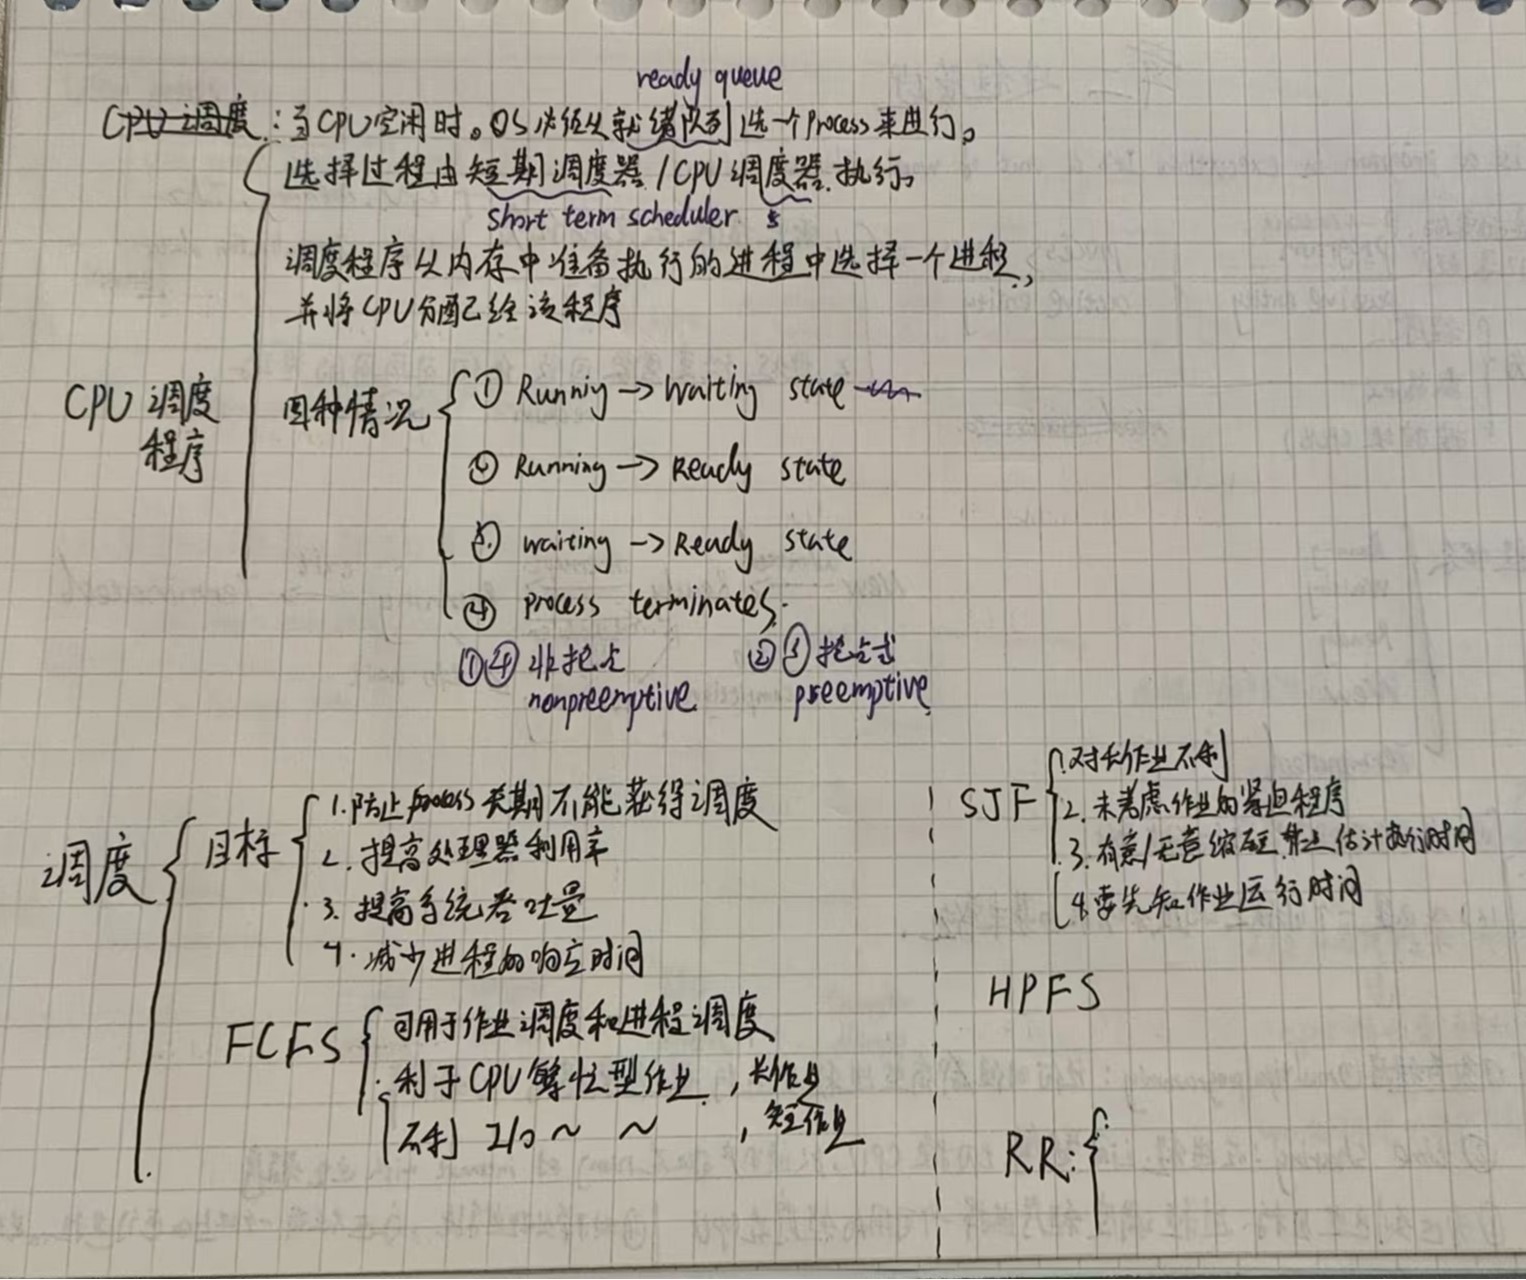 ready queue
CPU调度：当CPU空闲时。OS必须从就绪队列选一个process来进行。
选择过程由短期调度器/CPU调度器执行。
short term scheduler s
调度程序从内存中准备执行的进程中选择一个进程，
并将CPU分配给该程序
CPU调度
程序
四种情况
① Running → Waiting state
② Running → Ready state
③ waiting → Ready state
④ process terminates.
①④非抢占
nonpreemptive
②③抢占式
preemptive
调度
目标
1.防止process长期不能获得调度
2.提高处理器利用率
3.提高系统吞吐量
4.减少进程的响应时间
FCFS
可用于作业调度和进程调度
利于CPU繁忙型作业，长作业
不利 I/O～ ～，短作业
SJF
1.对长作业不利
2.未考虑作业的紧迫程序
3.有意/无意缩短 估计执行时间
4.要先知作业运行时间
HPFS
RR：